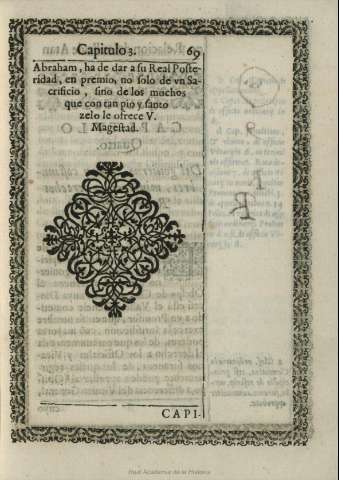 Capitulo 3. 69
Abraham, ha de dar a su Real Poste-
ridad, en premio, no solo de vn Sa-
crificio, sino de los muchos
que con tan pio y santo
zelo le ofrece V.
Magestad.
CAPI-
Real Academia de la Historia